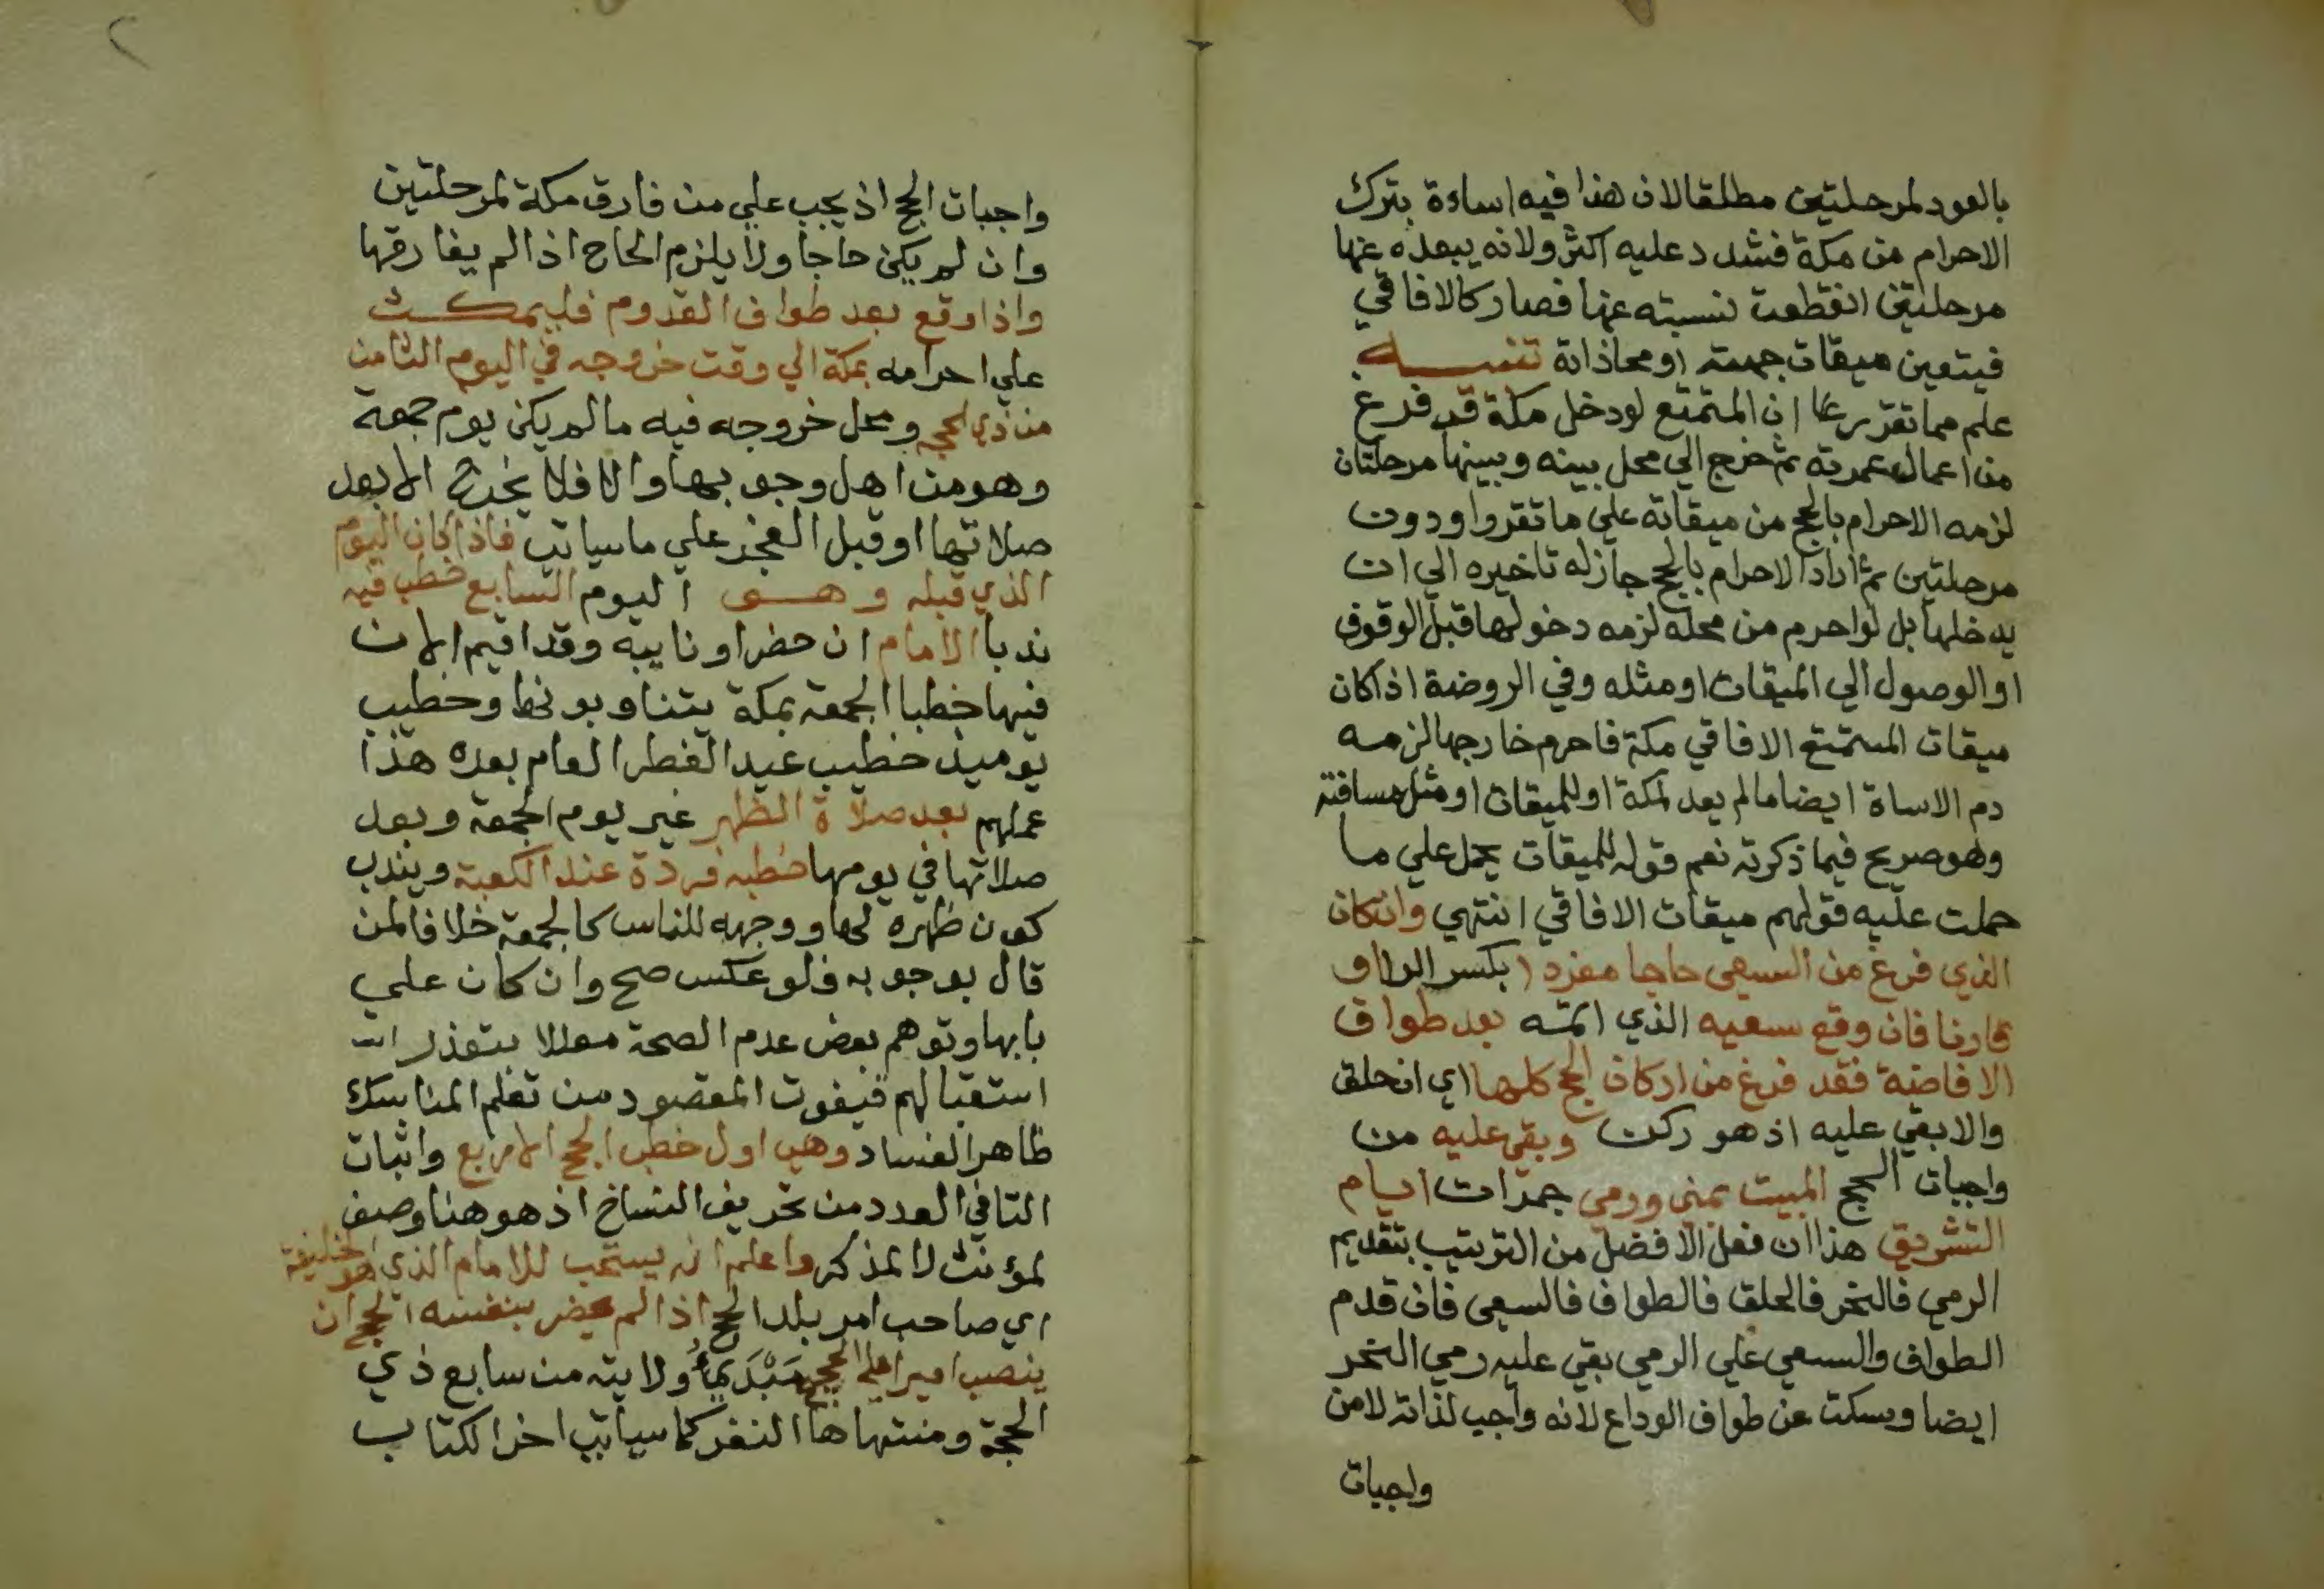 بالعود لمرحلتين مطلقا لان هذا فيه اساءة بترك
الاحرام من مكة فشدد عليه اكثر ولانه ببعده عنها
مرحلتين انقطعت نسبته عنها فصار كالافاقي
فيتعين ميقات جهته او محاذاته تنبيه
علم مما تقرر ان المتمتع لو دخل مكة قد فرغ
من اعمال عمرته ثم خرج الي محل بينه وبينها مرحلتان
لزمه الاحرام بالحج من ميقاته علي ما تقرر او دون
مرحلتين ثم اراد الاحرام بالحج جاز له تاخيره الي ان
يدخلها بل لو احرم من محله لزمه دخولها قبل الوقوف
او الوصول الي الميقات او مثله وفي الروضة اذا كان
ميقات المتمتع الافاقي مكة فاحرم خارجها لزمه
دم الاساة ايضا ما لم يعد لمكة او للميقات او مثل مسافته
وهو صريح فيما ذكرته نعم قوله للميقات يحمل علي ما
حملت عليه قولهم ميقات الافاقي انتهي وان كان
الذي فرغ من السعي حاجا مفردا بكسر الرا او
قارنا فان وقع سعيه الذي اتمه بعد طواف
الافاضة فقد فرغ من اركان الحج كلها اي ان حلق
والا بقي عليه اذ هو ركن وبقي عليه من
واجبات الحج المبيت بمني ورمي جمرات ايام
التشريق هذا ان فعل الافضل من الترتيب بتقديم
الرمي فالنحر فالحلق فالطواف فالسعي فان قدم
الطواف والسعي علي الرمي بقي عليه رمي النحر
ايضا وسكت عن طواف الوداع لانه واجب لذاته لا من
واجبات
واجبات الحج اذ يجب علي من فارق مكة لمرحلتين
وان لم يكن حاجا ولا يلزم الحاج اذا لم يفارقها
واذا وقع بعد طواف القدوم فليمكث
علي احرامه بمكة الي وقت خروجه في اليوم الثامن
من ذي الحجه ومحل خروجه فيه ما لم يكن يوم جمعة
وهو من اهل وجوبها والا فلا يخرج الا بعد
صلاتها او قبل الفجر علي ما سياتي فاذا كان اليوم
الذي قبله وهو اليوم السابع خطب فيه
ندبا الامام ان حضر او نايبه وقد اقيم الان
فيها خطبا الجمعة بمكة يتناوبونها وخطيب
يوميذ خطيب عيد الفطر العام بعده هذا
عملهم بعد صلاة الظهر غير يوم الجمعة وبعد
صلاتها في يومها خطبه فردة عند الكعبة ويندب
كون ظهره لها ووجهه للناس كالجمعة خلافا لمن
قال بوجوبه فلو عكس صح وان كان علي
بابها وتوهم بعض عدم الصحة معللا بتعذر
استقبالهم فيفوت المقصود من تعلم المناسك
ظاهر الفساد وهي اول خطب الحج الاربع واثبات
التا في العدد من تحريف النساخ اذ هو هنا وصف
لمؤنث لا لمذكر واعلم انه يستحب للامام الذي هو الخليفة
اي صاحب امر بلد الحج اذا لم يحضر بنفسه الحج ان
ينصب اميرا علي الحجيج مَبْدَئ ولايته من سابع ذي
الحجة ومنتهاها النفر كما سياتي اخر الكتاب